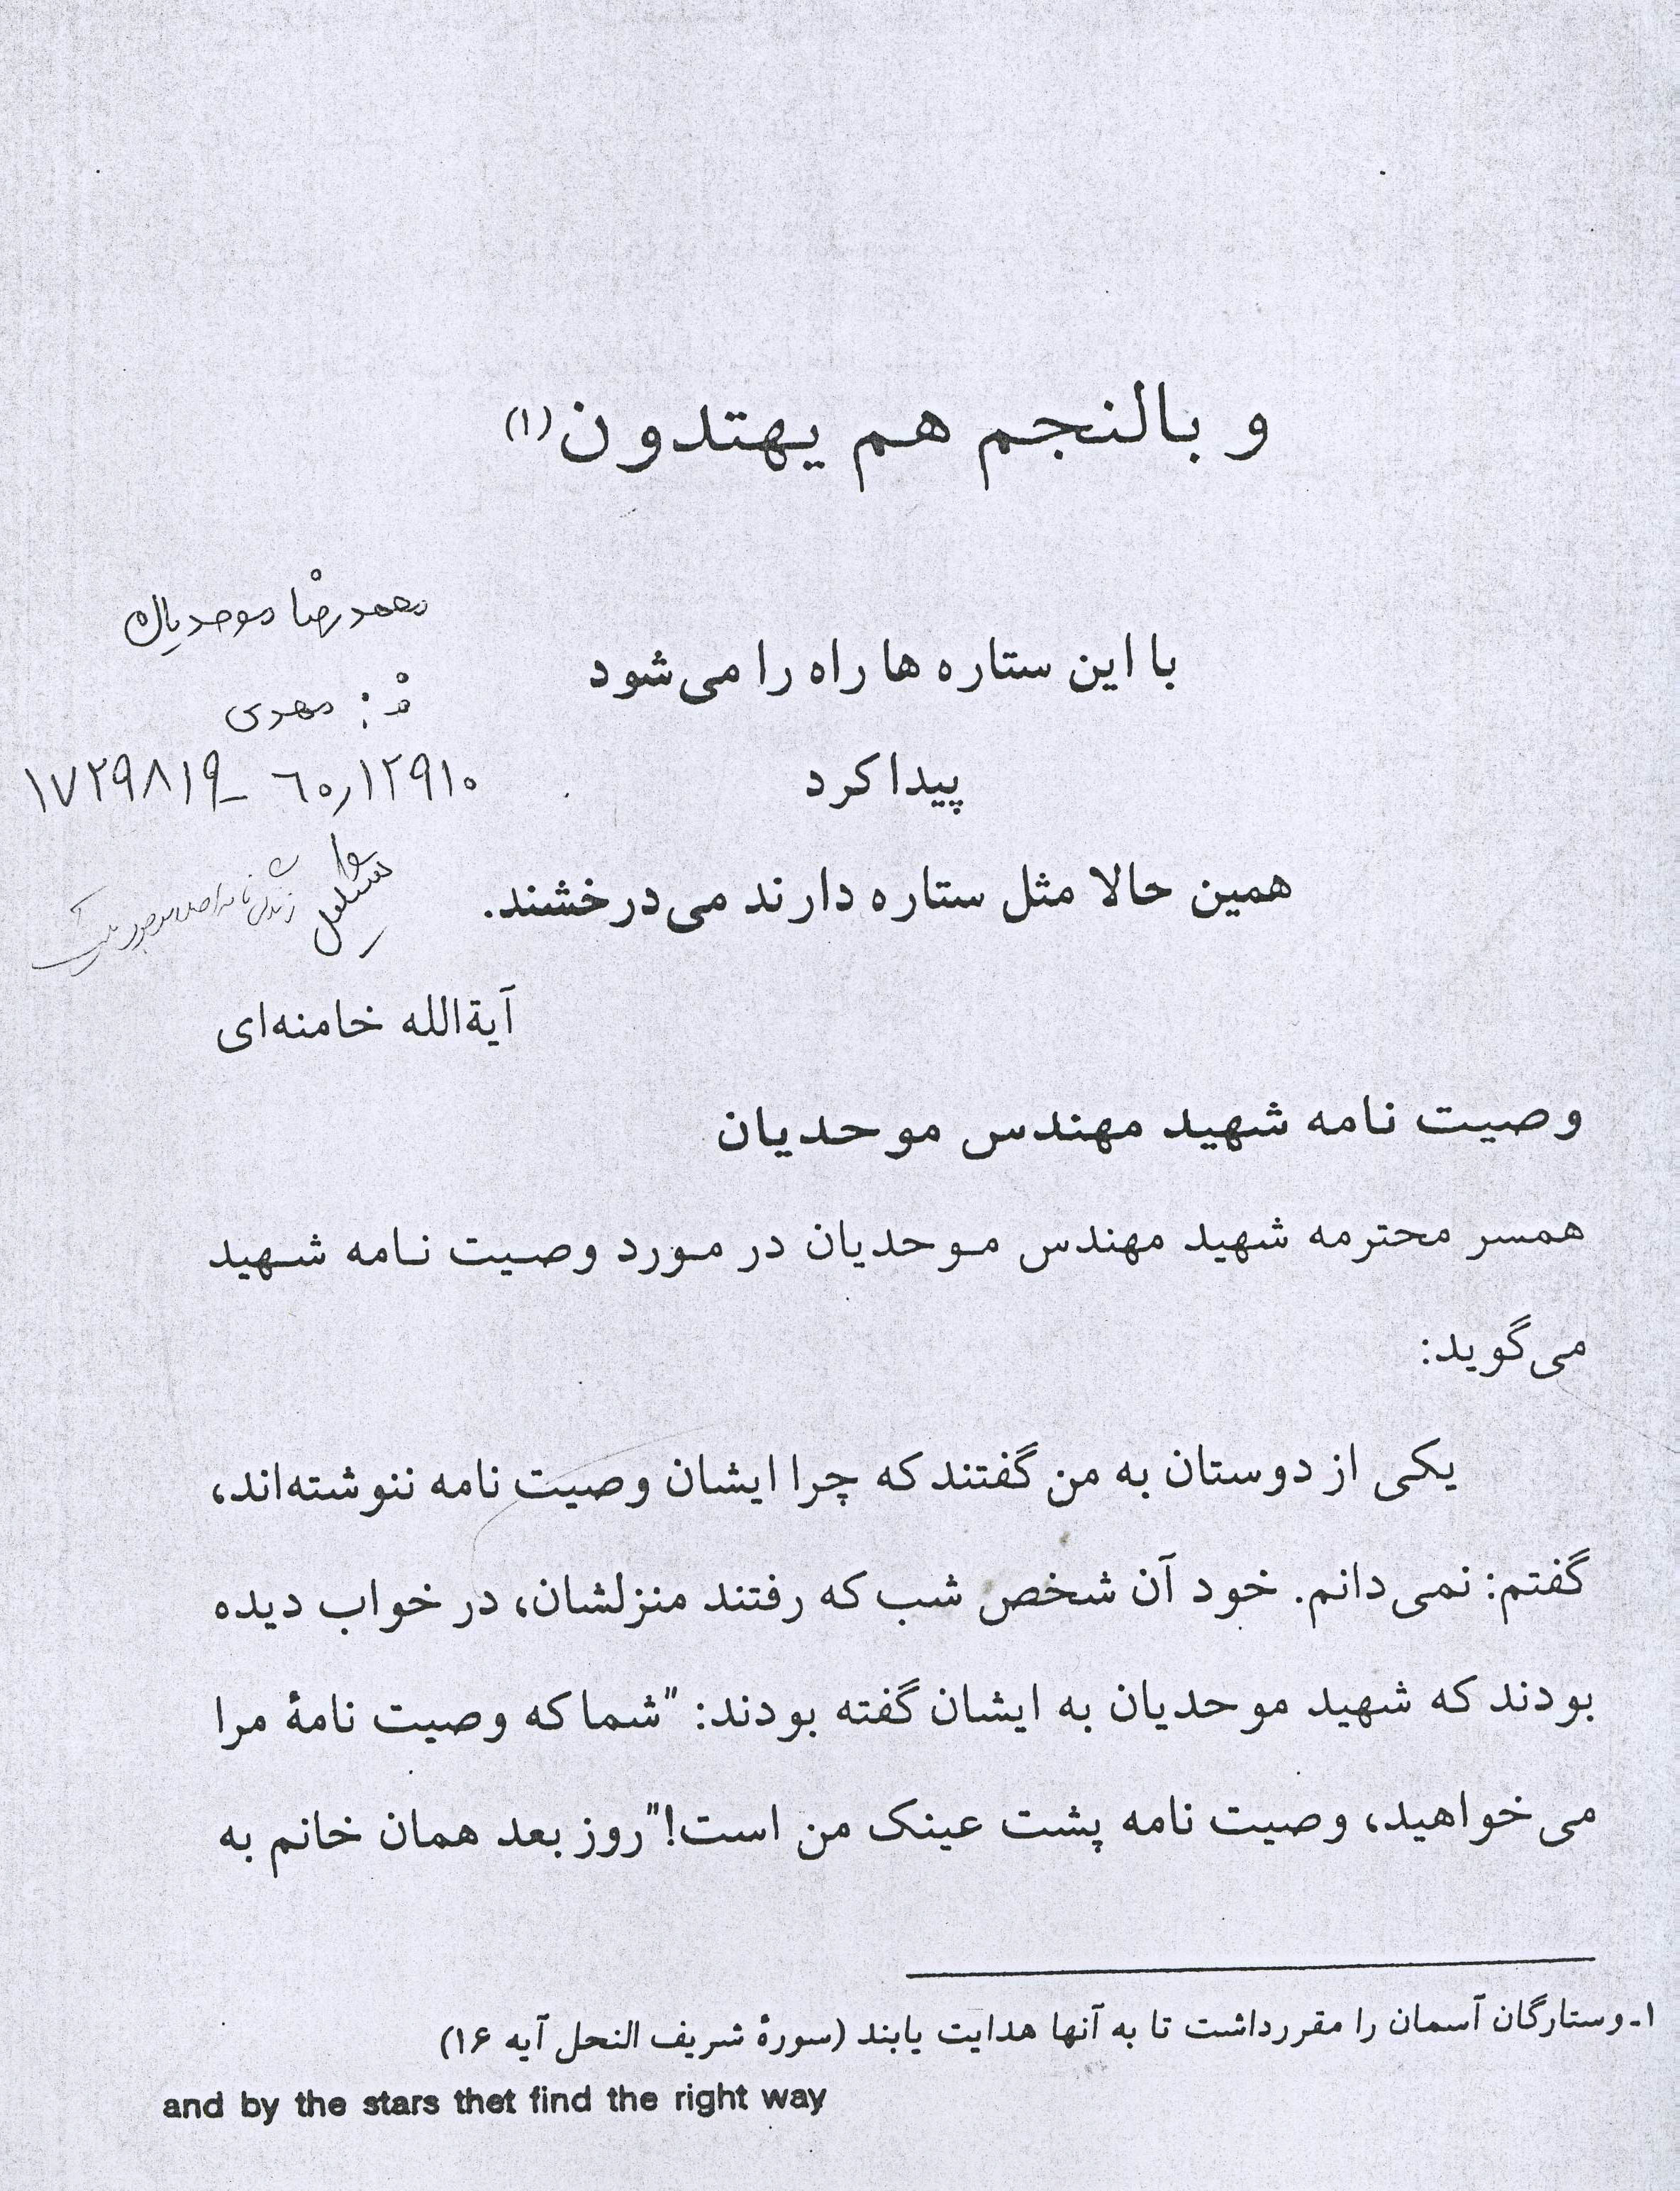 و بالنجم هم یهتدون(۱)
محمدرضا موحدیان
ف : مهدی
با این ستاره ها راه را می‌شود
۱۷۲۹۸۱۹ـ ٦۰٫۱۲۹۱۰
پیدا کرد
همین حالا مثل ستاره دارند می‌درخشند.
آیةالله خامنه‌ای
وصیت نامه شهید مهندس موحدیان
همسر محترمه شهید مهندس موحدیان در مورد وصیت نامه شهید
می‌گوید:
یکی از دوستان به من گفتند که چرا ایشان وصیت نامه ننوشته‌اند،
گفتم: نمی‌دانم. خود آن شخص شب که رفتند منزلشان، در خواب دیده
بودند که شهید موحدیان به ایشان گفته بودند: "شما که وصیت نامهٔ مرا
می‌خواهید، وصیت نامه پشت عینک من است!" روز بعد همان خانم به
۱ـ وستارگان آسمان را مقررداشت تا به آنها هدایت یابند (سورهٔ شریف النحل آیه ۱۶)
and by the stars thet find the right way